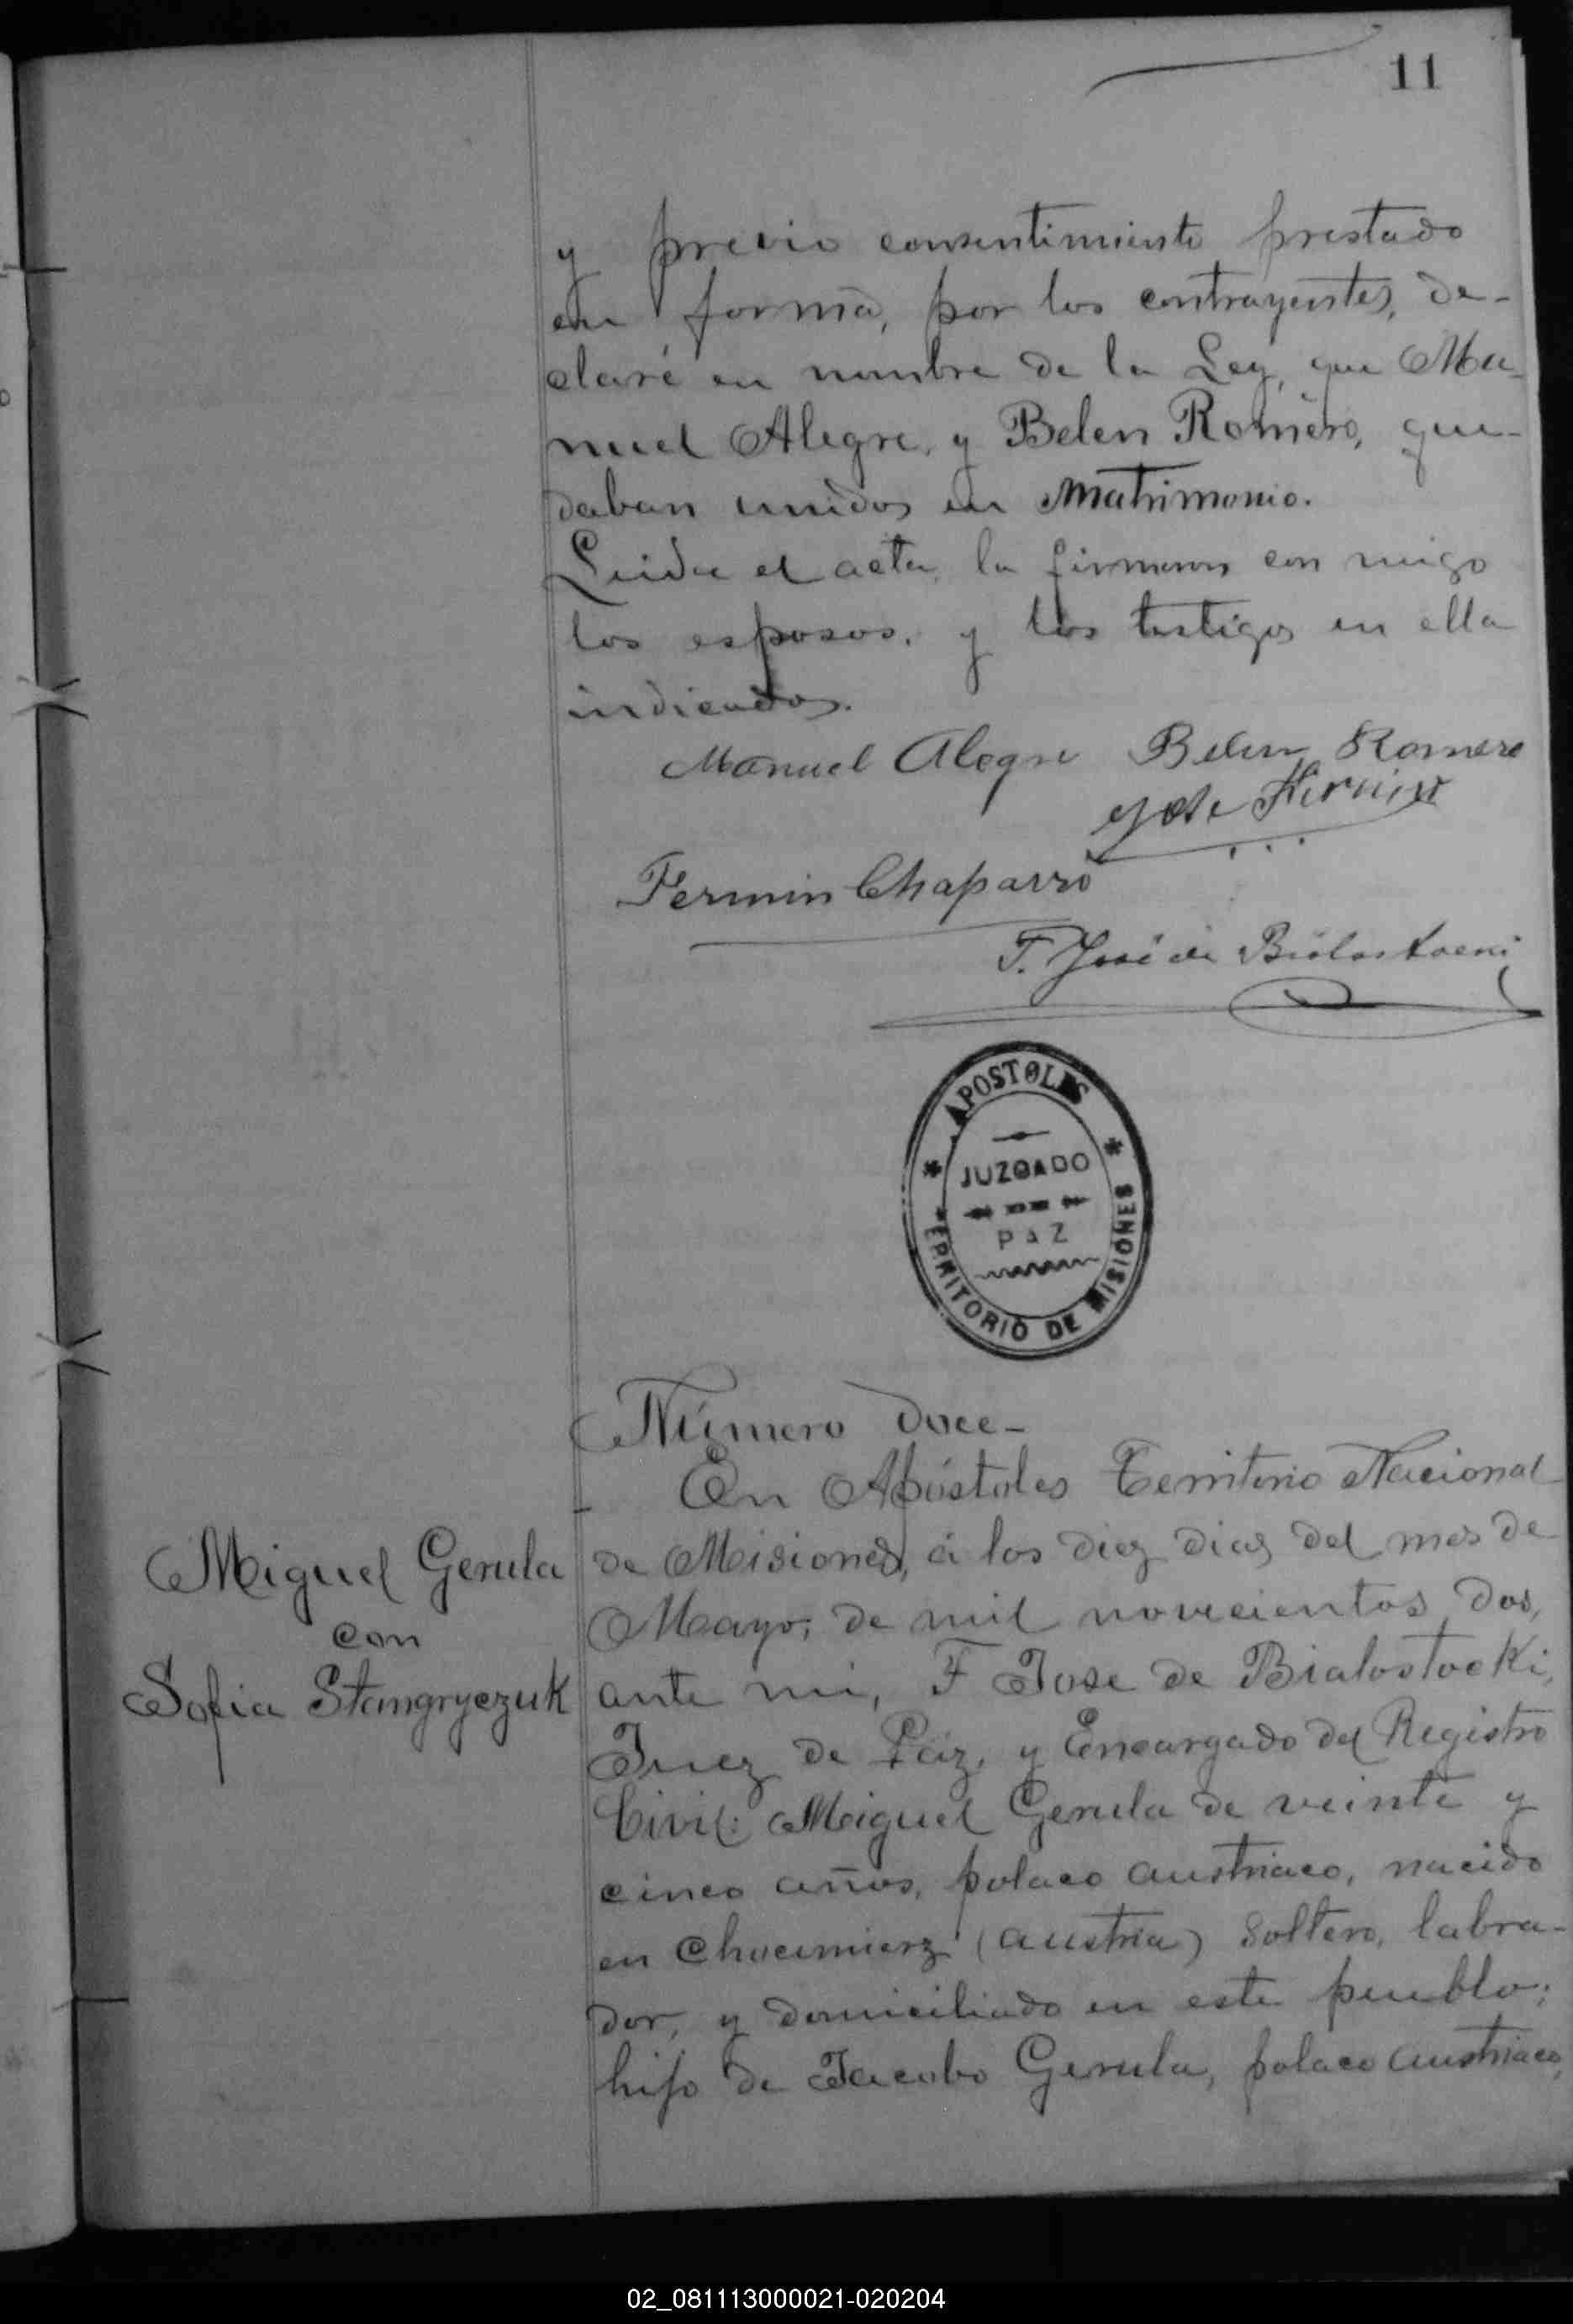 11
y previo consentimiento prestado
en forma, por los contrayentes, de-
claré en nombre de la Ley, que Ma-
nuel Alegre, y Belen Romero, que-
daban unidos en Matrimonio.
Leida el acta, la firmaron con migo
los esposos, y los testigos en ella
indicados.
Manuel Alegre Belen Romero
Fermin Chaparro
F. José de Bialostocki
APOSTOLES
JUZGADO
PAZ
TERRITORIO DE MISIONES
Número doce-
En Apóstoles Territorio Nacional
de Misiones, á los diez dias del mes de
Mayo, de mil novecientos dos,
ante mi, F Jose de Bialostocki,
Juez de Paz, y Encargado del Registro
Civil: Miguel Gerula de veinte y
cinco años, polaco austriaco, nacido
en Chocimierz (Austria) Soltero, labra-
dor, y domiciliado en este pueblo;
hijo de Jacobo Gerula, polaco austriaco,
Miguel Gerula
con
Sofia Stangryczuk
02_081113000021-020204